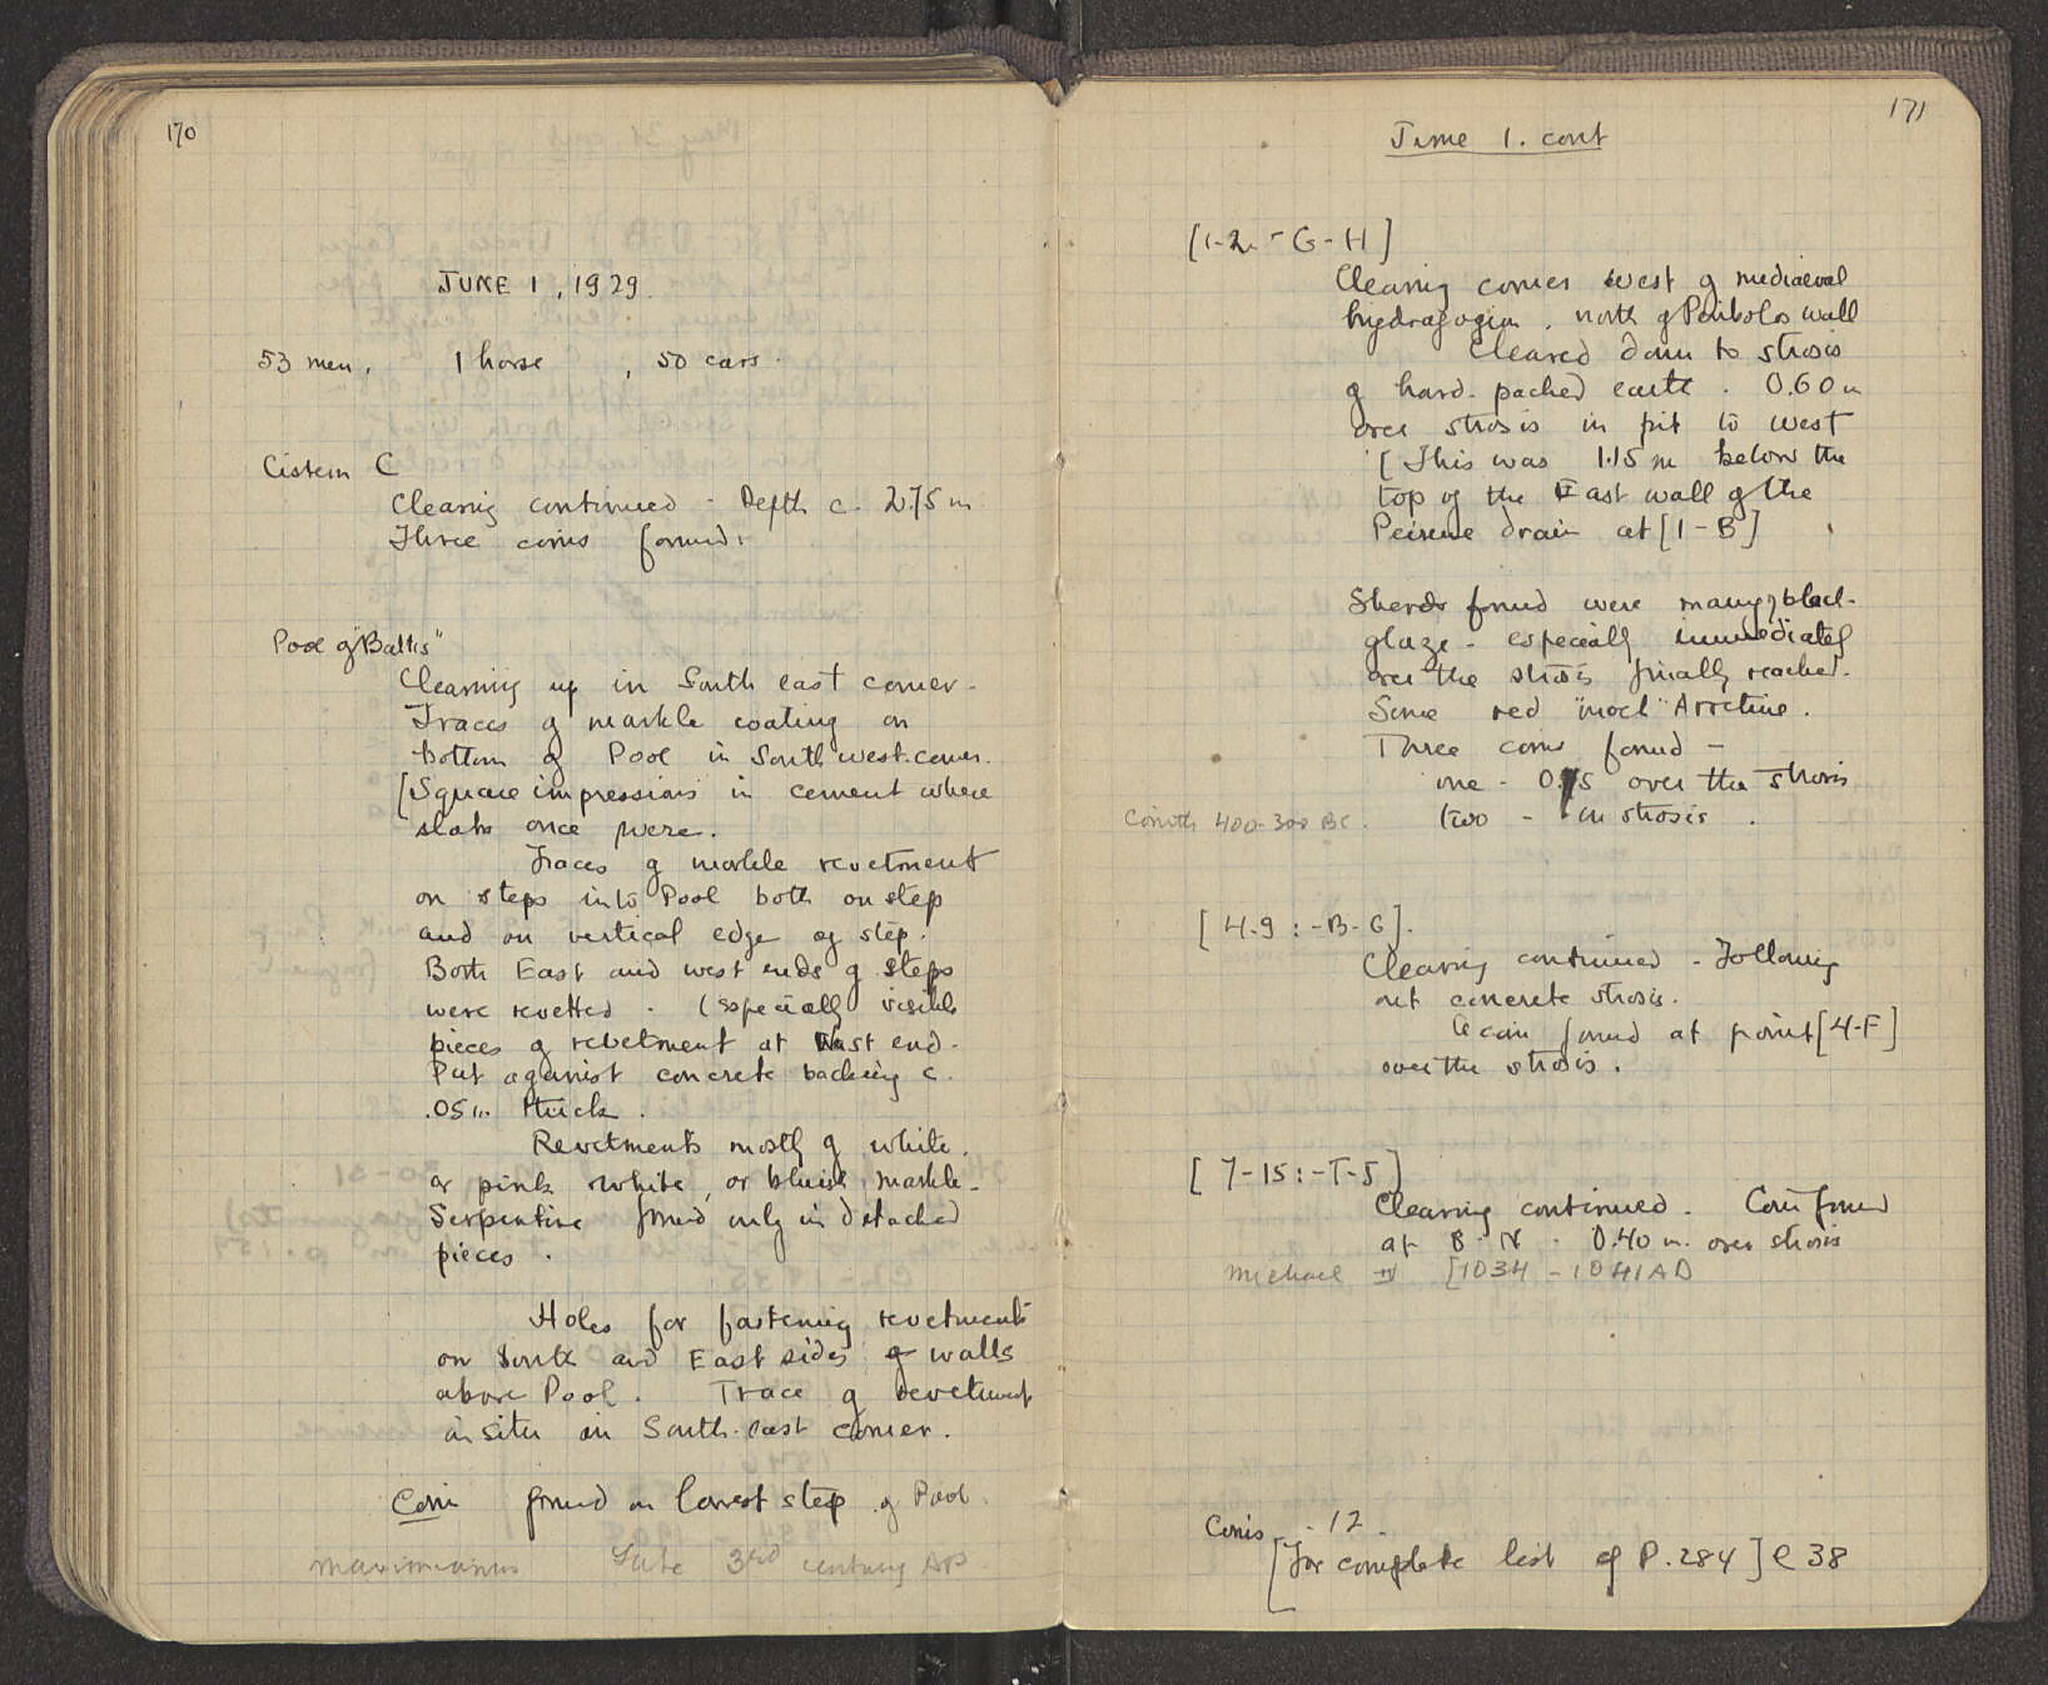 170
JUNE 1, 1929.
53 men, 1 horse, 50 cars.
Cistern C
Clearing continued - Depth c. 2.75 m
Three coins found.
Pool of "Baths"
Cleaning up in South east corner.
Traces of marble coating on
bottom of Pool in South west corner.
[Square impressions in cement where
slabs once were.
Traces of marble revetment
on steps into Pool both on step
and on vertical edge of step.
Both East and west ends of steps
were revetted. (Especially visible
pieces of revetment at East end.
Put against concrete backing c.
.05 m. thick.
Revetments mostly of white,
or pink white, or bluish marble.
Serpentine found only in detached
pieces.
Holes for fastening revetments
on South and East sides of walls
above Pool. Trace of revetment
in situ in South-east corner.
Coin found on lowest step of Pool.
Maximianus Late 3rd century AD
171
June 1. cont
[1-2 - G-H]
Clearing corner west of mediaeval
hydragogion, north of Peribolos wall
Cleared down to strosis
of hard-packed earth. 0.60 m
over strosis in pit to west
[This was 1.15 m below the
top of the East wall of the
Peirene drain at [1-B]
Sherds found were many, black-
glaze - especially immediately
over the strosis finally reached.
Some red "mock" Arretine.
Three coins found -
one - 0.15 over the strosis
two - in strosis.
Corinth 400-300 BC.
[4-9 : -B-G].
Clearing continued - Following
out concrete strosis.
A coin found at point [4-F]
over the strosis.
[7-15 : -T-S]
Clearing continued. Coin found
at 8-N. 0.40 m. over strosis
Michael IV [1034-1041 AD
Coins - 12.
[For complete list cf P. 284] e 38